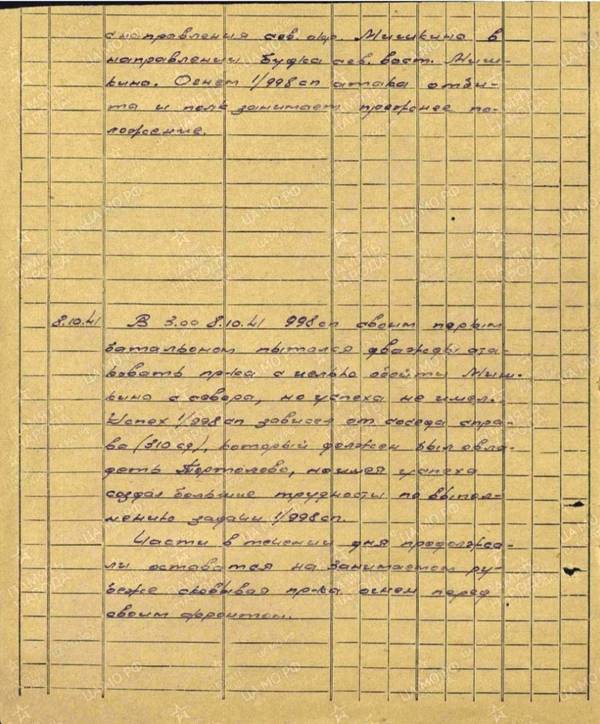 с направления сев. окр. Мишкино в
направлении Будка сев. вост. Миш-
кино. Огнем 1/998 сп атака отби-
та и полк занимает прежнее по-
ложение.
8.10.41 В 3.00 8.10.41 998 сп своим первым
батальоном пытался дважды ата-
ковать пр-ка с целью обойти Миш-
кино с севера, но успеха не имел.
Успех 1/998 сп зависел от соседа спра-
ва (310 сд), который должен был овла-
деть Тортолово, не имея успеха
создал большие трудности по выпол-
нению задачи 1/998 сп.
Части в течении дня продолжа-
ли оставатся на занимаемом ру-
беже сковывая пр-ка огнем перед
своим фронтом.